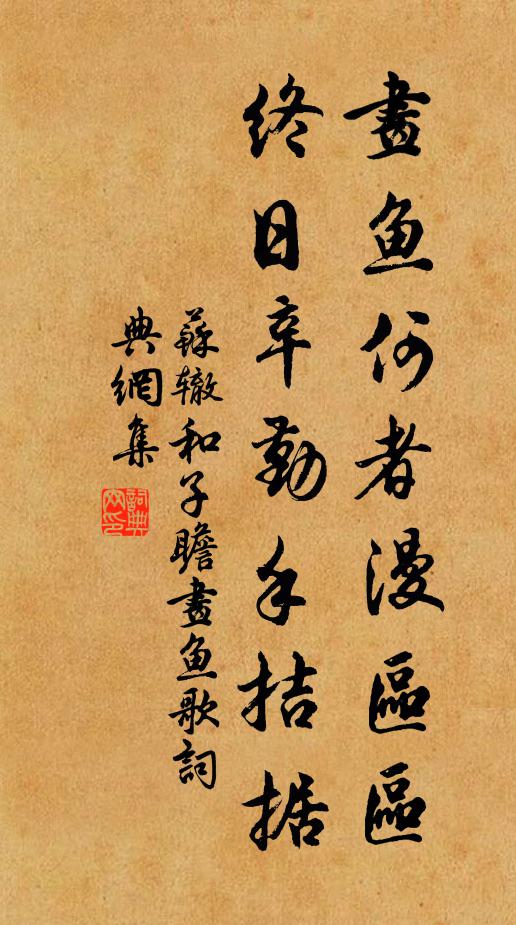 畫魚何者漫區區
終日辛勤手拮据
蘇辙和子瞻畫魚歌詞
典網集
詞典
网印